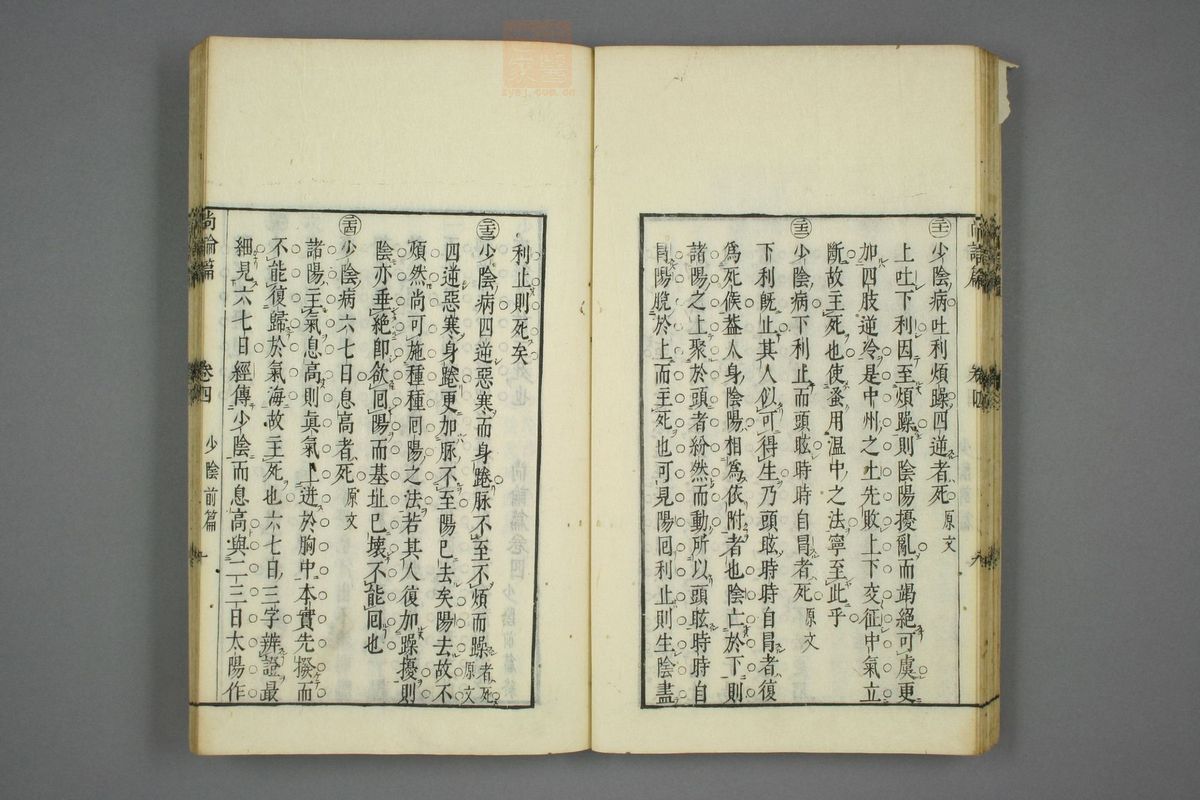 尚論篇 卷四 九
㊁㊁少陰病吐利煩躁四逆者死 原文
上吐下利因至煩躁則陰陽擾亂而竭絕可虞更
加四肢逆冷是中州之土先敗上下交征中氣立
斷故主死也使蚤用溫中之法寧至此乎
少陰病下利止而頭眩時時自冒者死 原文
下利旣止其人似可得生乃頭眩時時自冒者復
爲死候葢人身陰陽相爲依附者也陰亡於下則
諸陽之上聚於頭者紛然而動所以頭眩時時自
冒陽脫於上而主死也可見陽回利止則生陰盡
利止則死矣
少陰病四逆惡寒而身踡脉不至不煩而躁者死 原文
四逆惡寒身踡更加脉不至陽已去矣陽去故不
煩然尚可施種種囘陽之法若其人復加躁擾則
陰亦垂絕卽欲囘陽而基址已壞不能囘也
少陰病六七日息高者死 原文
諸陽主氣息高則眞氣上迸於胸中本實先撥而
不能復歸於氣海故主死也六七日三字辨證最
細見六七日經傳少陰而息高與二三日太陽作
尚論篇 卷四 少陰前篇